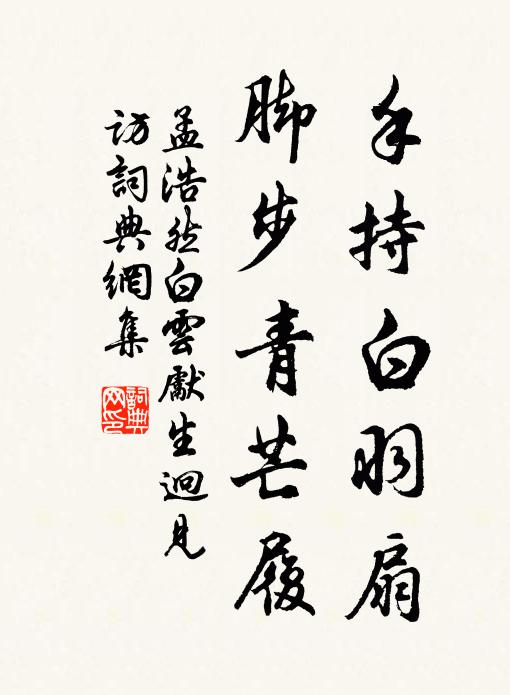 手持白羽扇
脚步青芒履
孟浩然白雲獻生迥見
訪詞典網集
詞典网印